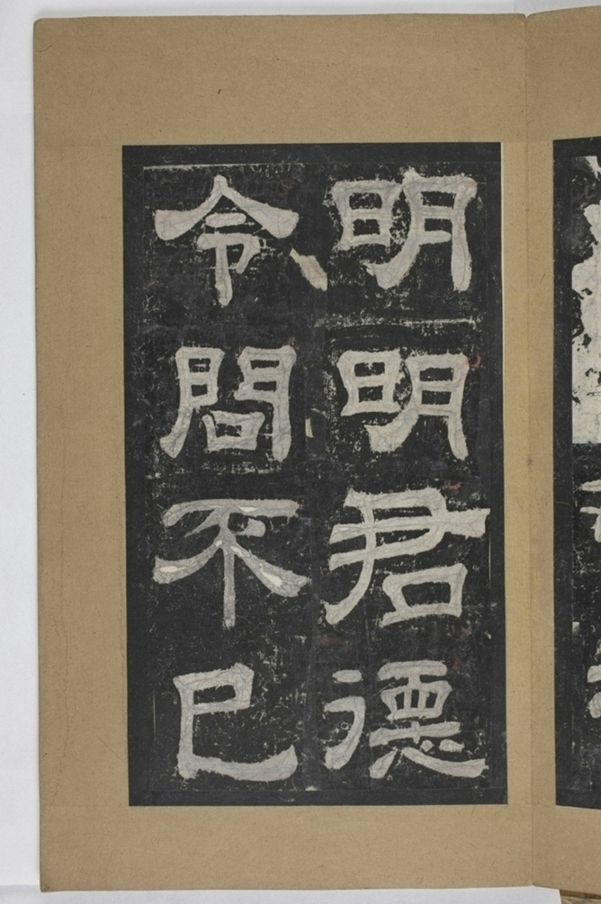 明明君德
令問不已